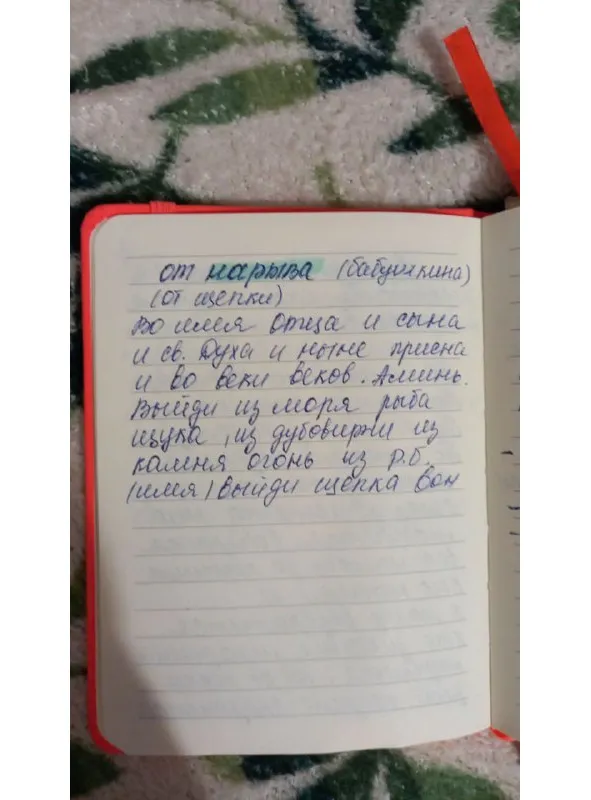 от нарыва (бабушкина)
(от щепки)
Во имя Отца и сына
и св. Духа и ныне присна
и во веки веков. Аминь.
Выйди из моря рыба
щука, из дубовиржи из
камня огонь из р.б.
(имя) выйди щепка вон